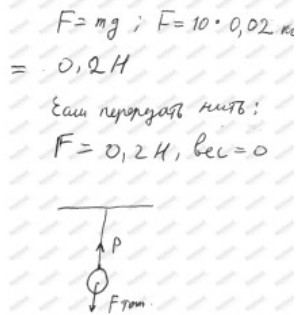 F = mg ; F = 10 · 0,02 кг
= 0,2 Н
Если перерезать нить:
F = 0,2 Н, вес = 0
P
F тяж.